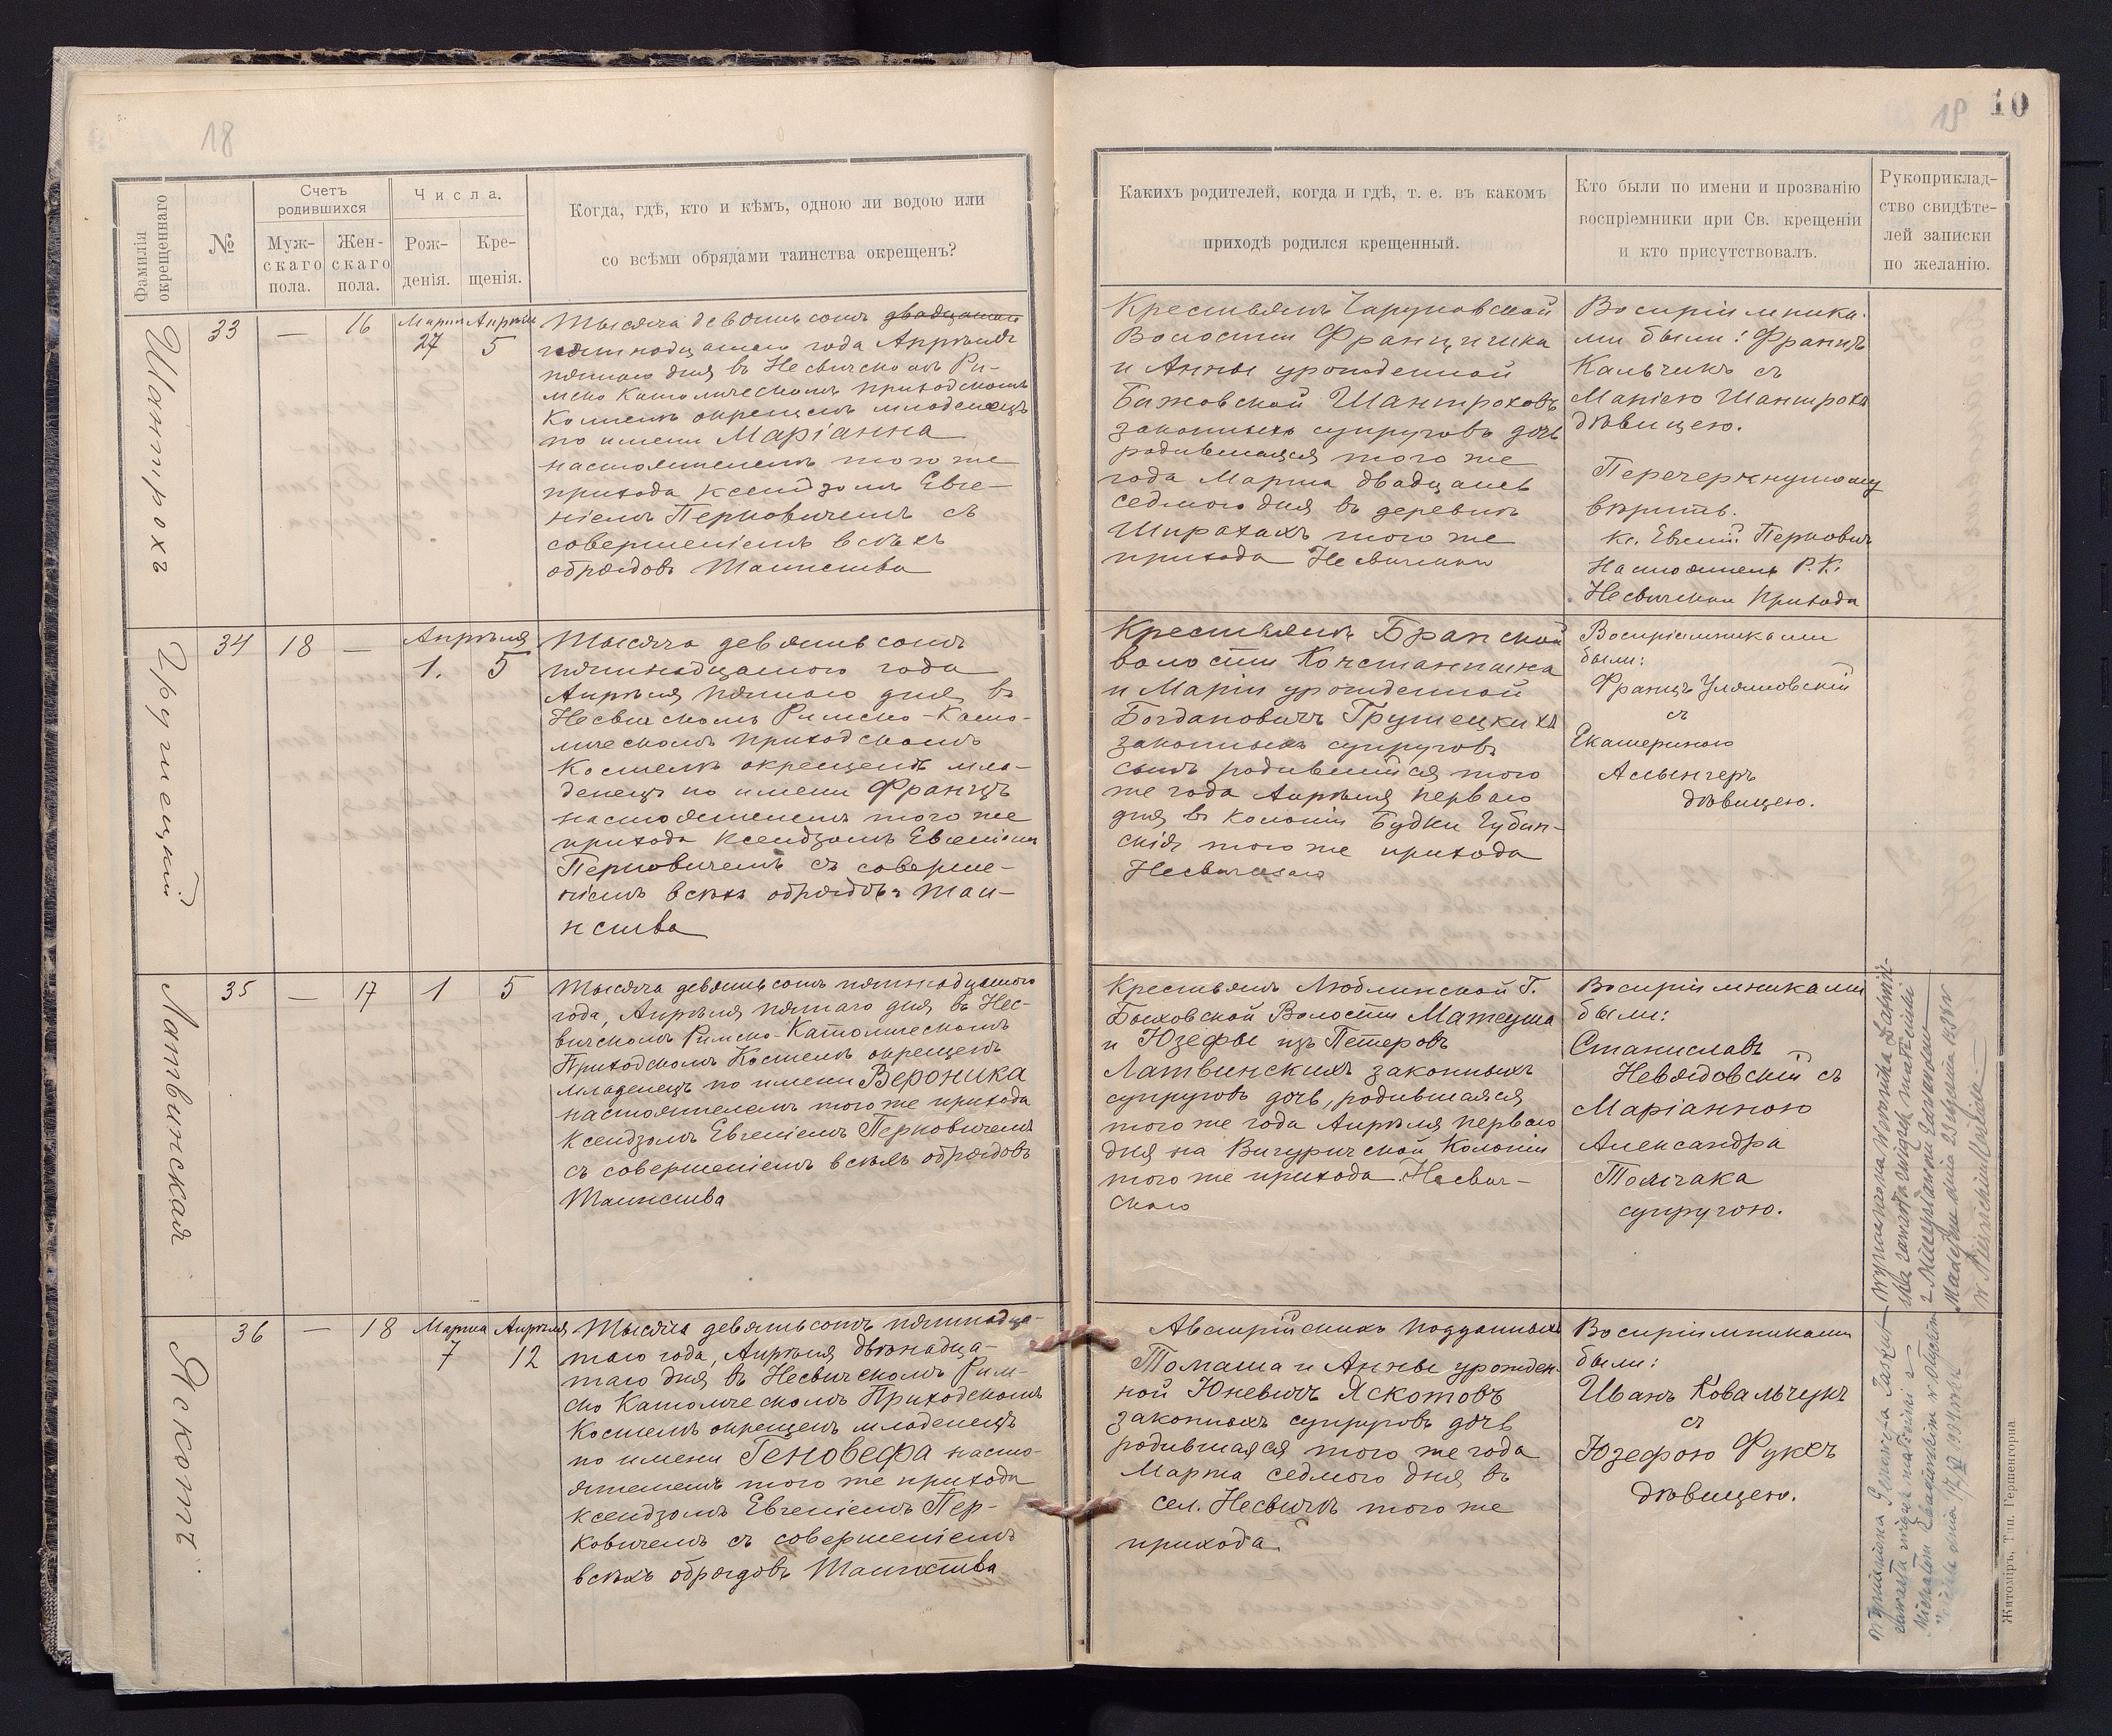 18
19 10
Фамилія окрещеннаго
№
Счетъ родившихся
Муж-
скаго
пола.
Жен-
скаго
пола.
Числа.
Рож-
денія.
Кре-
щенія.
Когда, гдѣ, кто и кѣмъ, одною ли водою или
со всѣми обрядами таинства окрещенъ?
Каких родителей, когда и гдѣ, т. е. въ какомъ
приходѣ родился крещенный.
Кто были по имени и прозванію
воспріемники при Св. крещеніи
и кто присутствовалъ.
Рукоприклад-
ство свидѣте-
лей записки
по желанію.
Шантрохъ
33 — 16
Марта Апрѣля
27 5
Тысяча девятьсотъ двадцатаго
пятнадцатаго года Апрѣля
пятаго дня въ Несвичскомъ Ри-
мско Католическомъ приходскомъ
Костелѣ окрещенъ младенецъ
по имени Маріанна
настоятелемъ того же
прихода Ксендзомъ Евге-
ніемъ Перковичемъ съ
совершеніемъ всѣхъ
обрядовъ Таинства
Крестьянъ Чаруковской
Волости Францишка
и Анны урожденной
Бажовской Шантроховъ
законныхъ супруговъ дочь
родившаяся того же
года Марта двадцать
седмого дня въ деревнѣ
того же
прихода Несвичскаго
Воспріемника-
ми были: Францъ
Кальчикъ съ
Маріею Шантроха
дѣвицею.
Перечеркнутому
вѣрить.
Кс. Евгеній Перковичъ
Настоятель Р. К.
Несвичскаго Прихода
Грушецкій
34 18 —
Апрѣля
1. 5
Тысяча девятьсотъ
пятнадцатаго года
Апрѣля пятаго дня въ
Несвичскомъ Римско-Като-
лическомъ приходскомъ
Костелѣ окрещенъ мла-
денецъ по имени Францъ
настоятелемъ того же
прихода Ксендзомъ Евгеніемъ
Перковичемъ съ соверше-
ніемъ всѣхъ обрядовъ Таи-
нства
Крестьянъ
волости Константина
и Маріи урожденной
Богдановичъ Грушецкихъ
законныхъ супруговъ
сынъ родившійся того
же года Апрѣля перваго
дня въ колоніи Будки Губин-
скія того же прихода
Несвичскаго
Воспріемниками
были:
Францъ Уляновскій
съ
Екатериною
дѣвицею.
Латвинская
35 — 17 1 5
Тысяча девятьсотъ пятнадцатаго
года, Апрѣля пятаго дня въ Нес-
вичскомъ Римско-Католическомъ
Приходскомъ Костелѣ окрещенъ
младенецъ по имени Вероника
настоятелемъ того же прихода
Ксендзомъ Евгеніемъ Перковичемъ
съ совершеніемъ всѣхъ обрядовъ
Таинства
Крестьянъ Люблинской Г.
Быховской Волости Матеуша
и Юзефы изъ Петеровъ
Латвинскихъ законныхъ
супруговъ дочь, родившаяся
того же года Апрѣля перваго
дня на Вигуричской Колоніи
того же прихода Несвич-
скаго
Воспріемниками
были:
Станиславъ
Невядовскій съ
Маріанною
Александра
Томчака
супругою.
Weronika
zawarła związek małżeński
z
dnia 23 stycznia
w Nieświczu
Яскотъ
36 — 18
Марта Апрѣля
7 12
Тысяча девятьсотъ пятнадца-
таго года, Апрѣля двѣнадца-
таго дня въ Несвичскомъ Рим-
ско Католическомъ Приходскомъ
Костелѣ окрещенъ младенецъ
по имени Геновефа насто-
ятелемъ того же прихода
ксендзомъ Евгеніемъ Пер-
ковичемъ съ совершеніемъ
всѣхъ обрядовъ Таинства
Австрійскихъ подданныхъ
Томаша и Анны урожден-
ной Юневичъ Яскотовъ
законныхъ супруговъ дочь
родившаяся того же года
Марта седмого дня въ
сел. Несвичѣ того же
прихода.
Воспріемниками
были:
Иванъ Ковальчукъ
съ
Юзефою Фуксъ
дѣвицею.
Genowefa
zawarła związek małżeński z
Michałem
dnia
Житоміръ, Тип. Гершенгорна